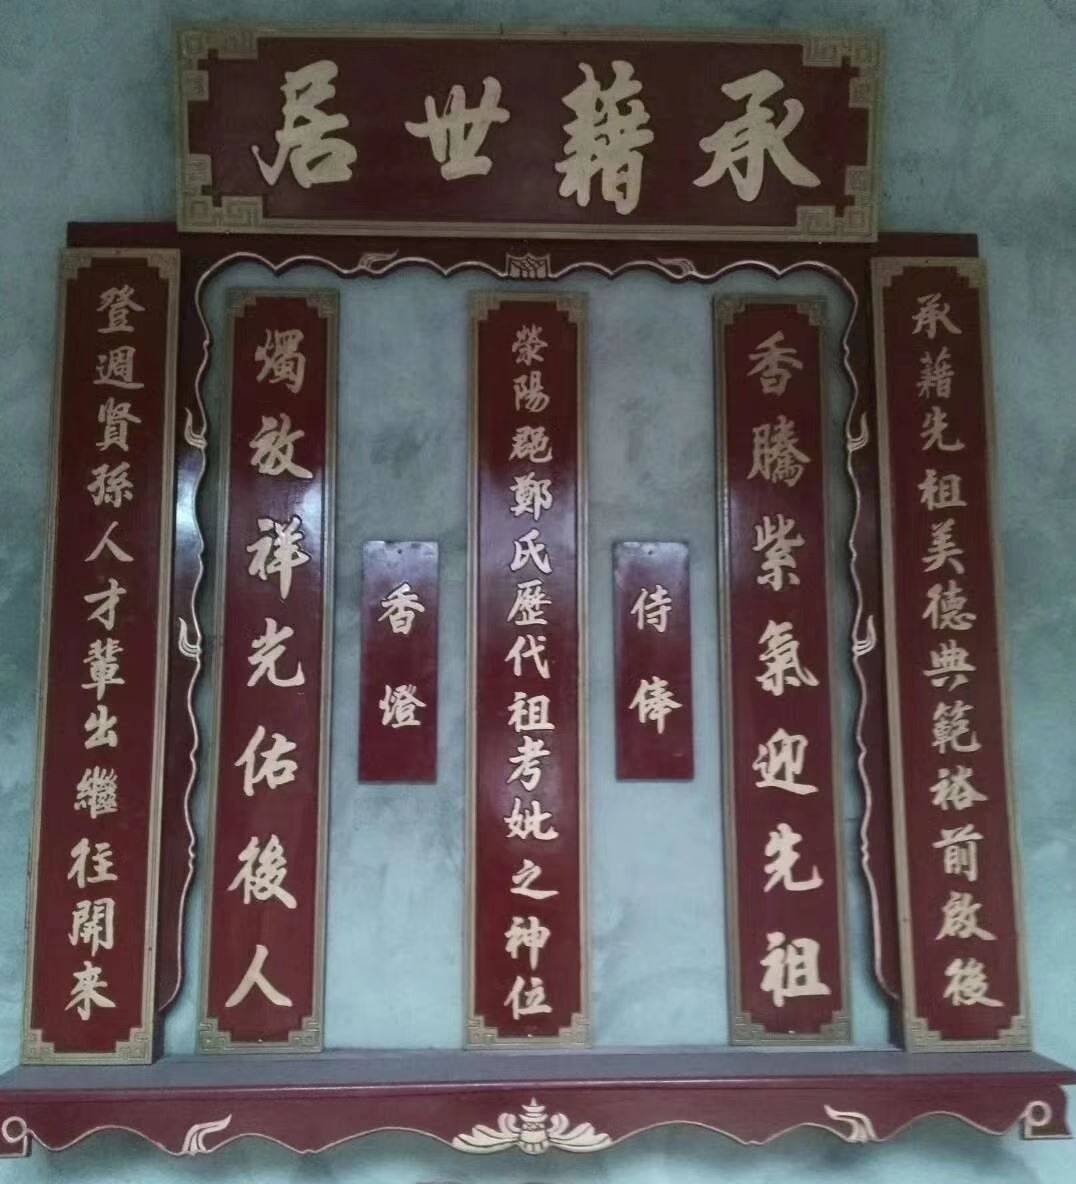 承藉世居
承藉先祖美德典範裕前啟後
香騰紫氣迎先祖
侍俸
滎陽郡鄭氏歷代祖考妣之神位
香燈
燭放祥光佑後人
登週賢孫人才輩出繼往開來